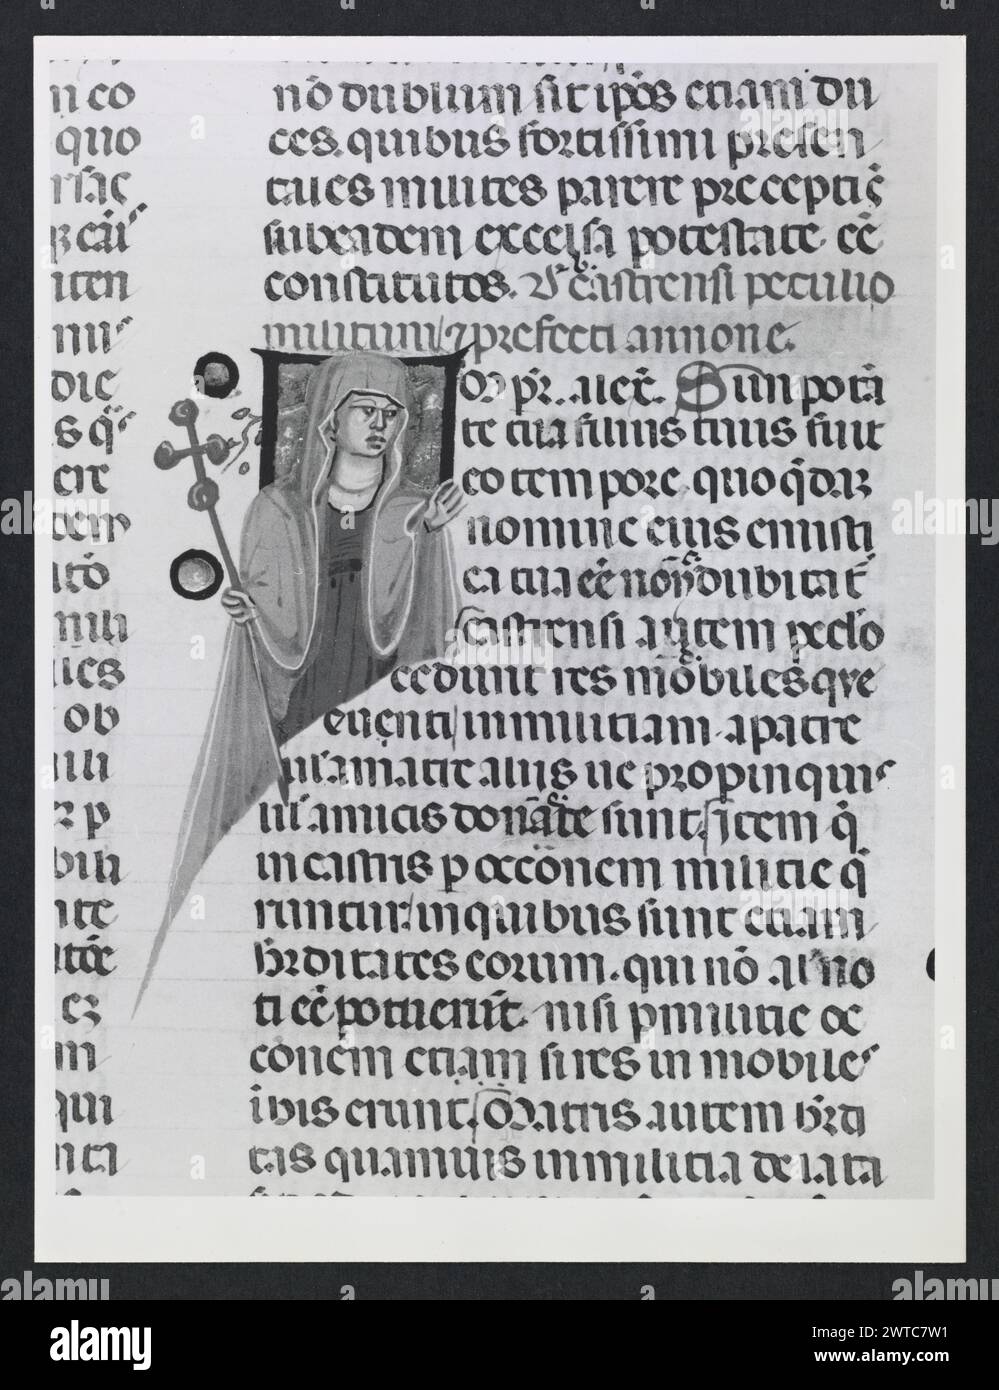 n co
quo
iten
mis
die
ere
tem
mili
ob
mili
bili
qui
nō dubium sit ipōs etiam du
ces. quibus fortissimi presen
tales milites parere preceptis̄
sub eadem excelsa potestate. eē
constitutos. castrensi peculio
militum ⁊ prefecti annone.
Sin potā
te tua filius tuus fuit
eo tempore. quo qdaȝ
nomine eius emisti
ca tua eē non dubitat̄
castrensi autem peclo
cedunt res mobiles que
eunti in militiam. a patre
ul. a matre aliis ue propinquis
ul. amicis donate sunt. Item q̄
in castris p occōnem militie q̄
runtur. in quibus sunt etiam
hr̄ditates eorum. qui nō al. no
ti eē potuerūt. nisi p militie oc
conem etiam si res in mobiles
ībis erunt. Matris autem hr̄di
tas quamuis in militia delata
alamy
Image ID: 2WTC7W1
www.alamy.com